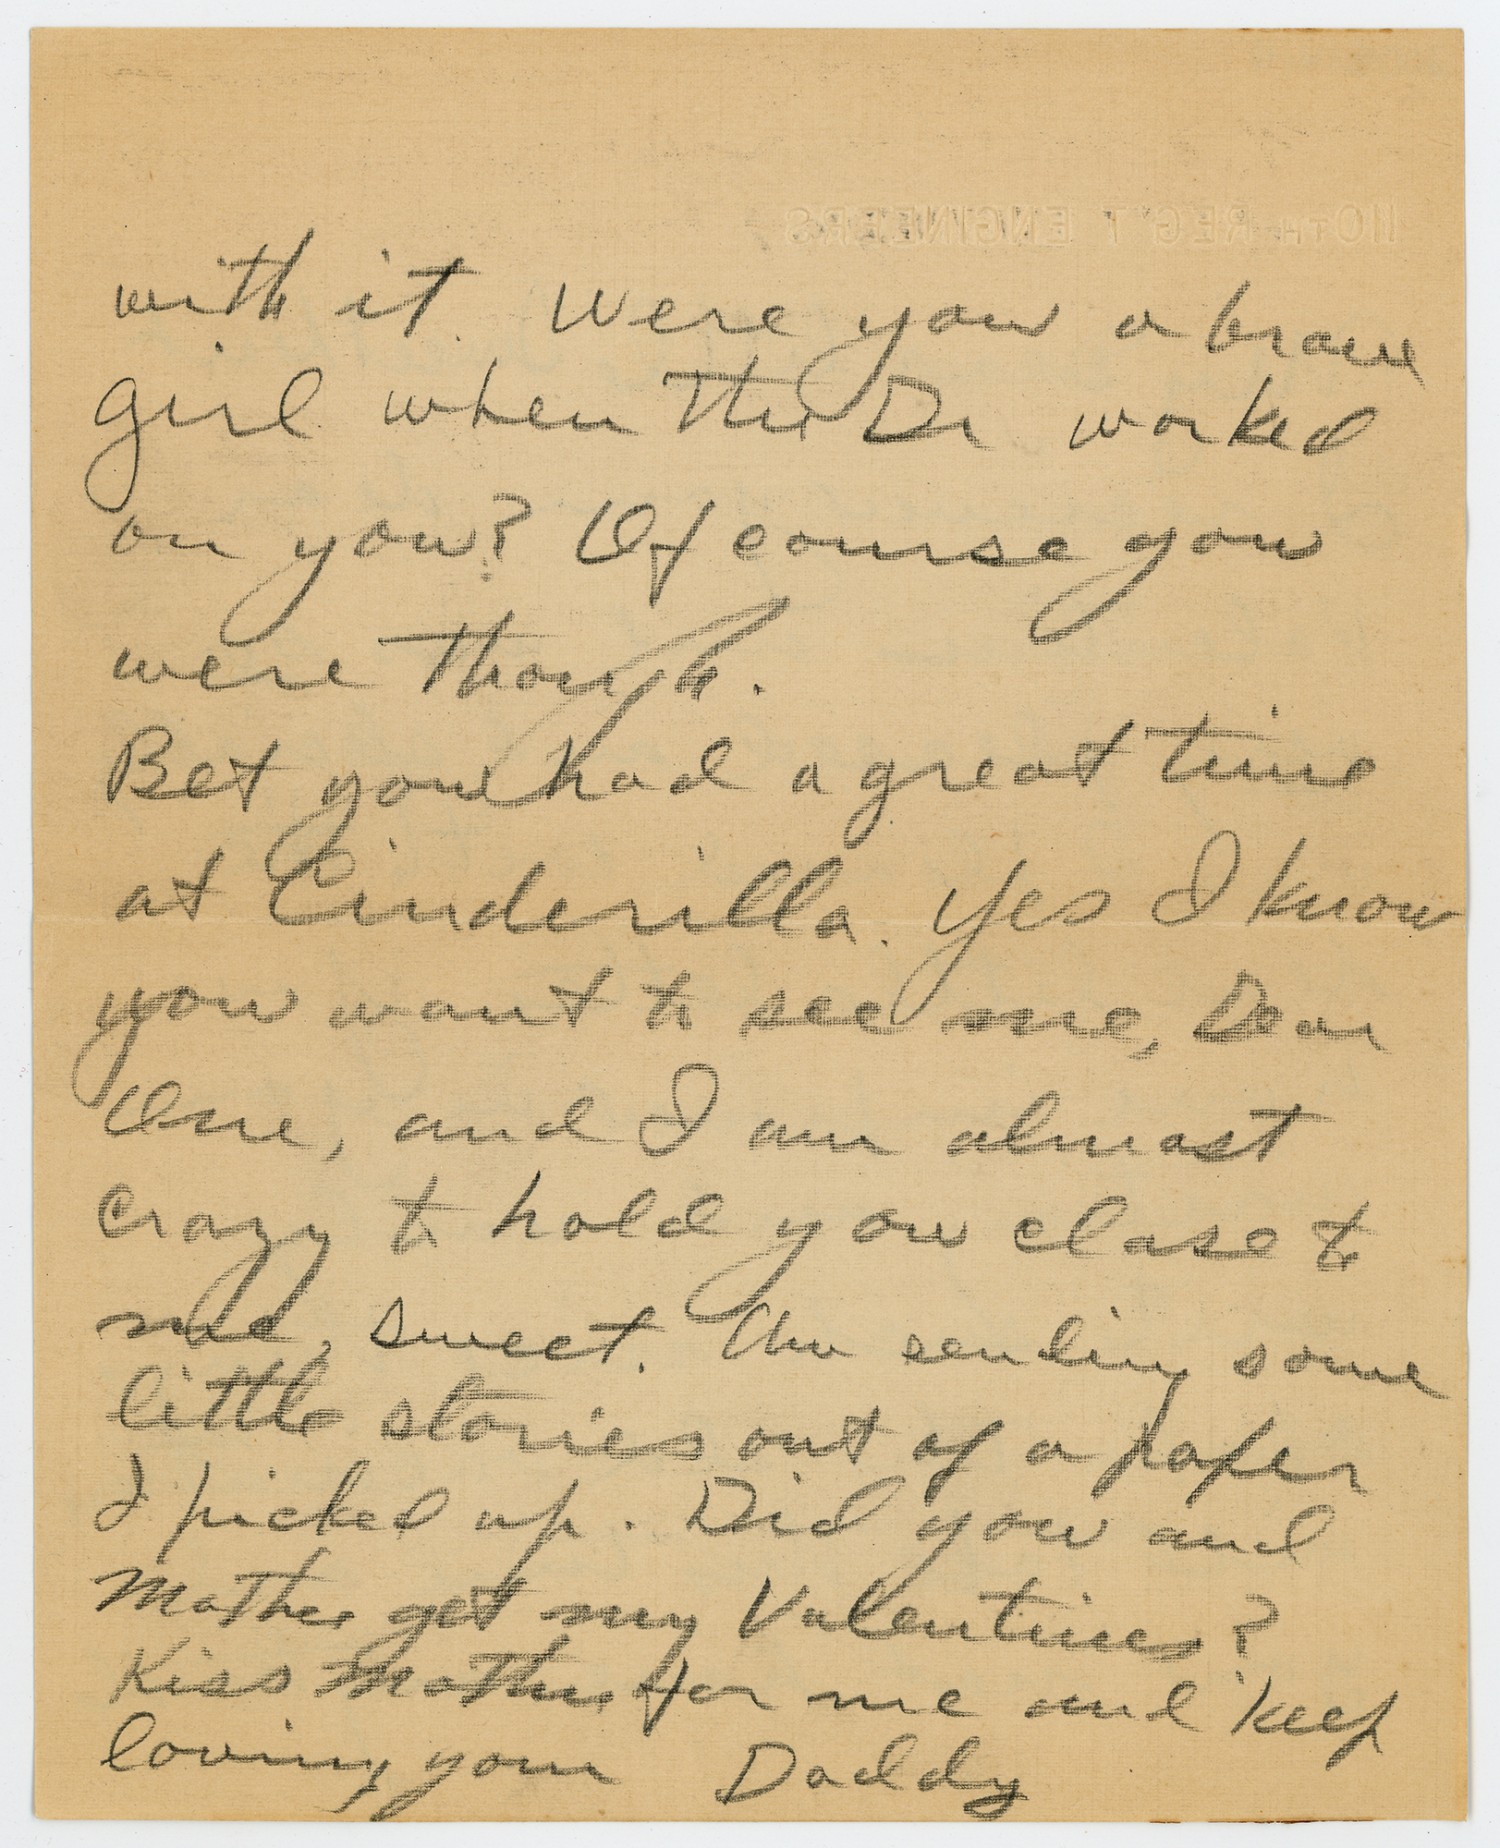 110TH REG'T ENGINEERS
with it. Were you a brave
girl when the Dr worked
on you? Of course you
were though.
Bet you had a great time
at Cinderilla. Yes I know
you want to see me, Dear
One, and I am almost
crazy to hold you close to
me, sweet. Am sending some
little stories out of a paper
I picked up. Did you and
Mother get my Valentines?
Kiss Mother for me and keep
loving your Daddy